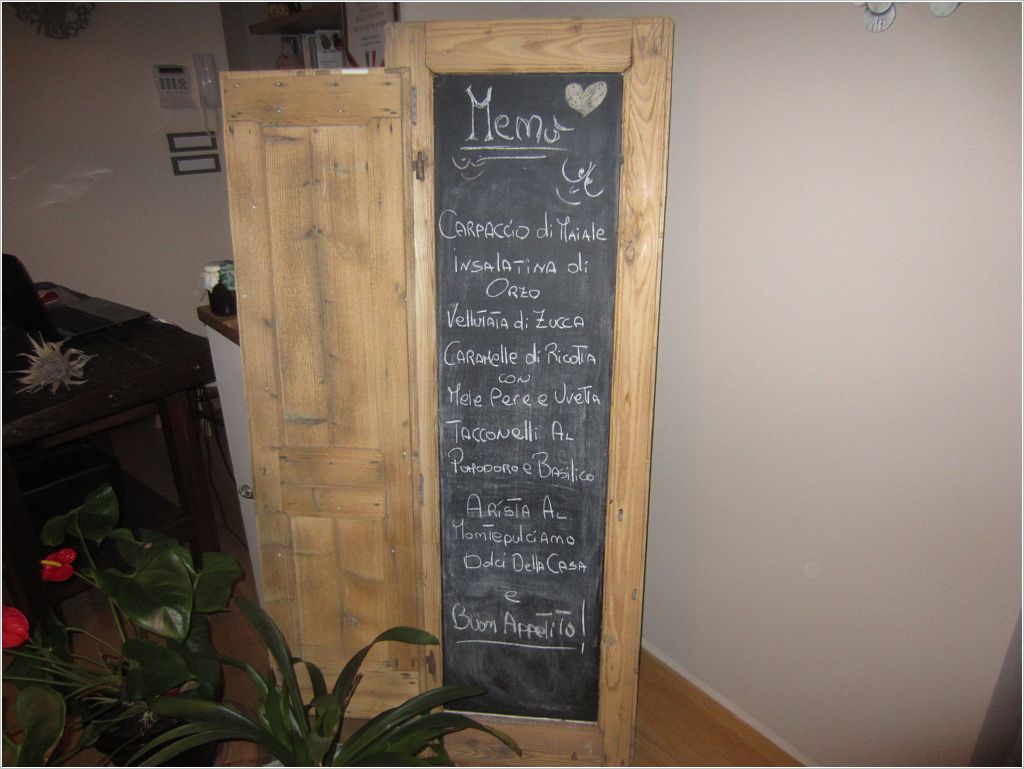 Menu
CARPACCIO di MAIALE
INSALATINA di
ORZO
Vellutata di ZUCCA
CARAMELLE di RICOTTA
CON
Mele Pere e Uvetta
TACCONELLI AL
POMODORO e BASILICO
ARISTA AL
Montepulciano
Dolci Della CASA
e
Buon Appetito!